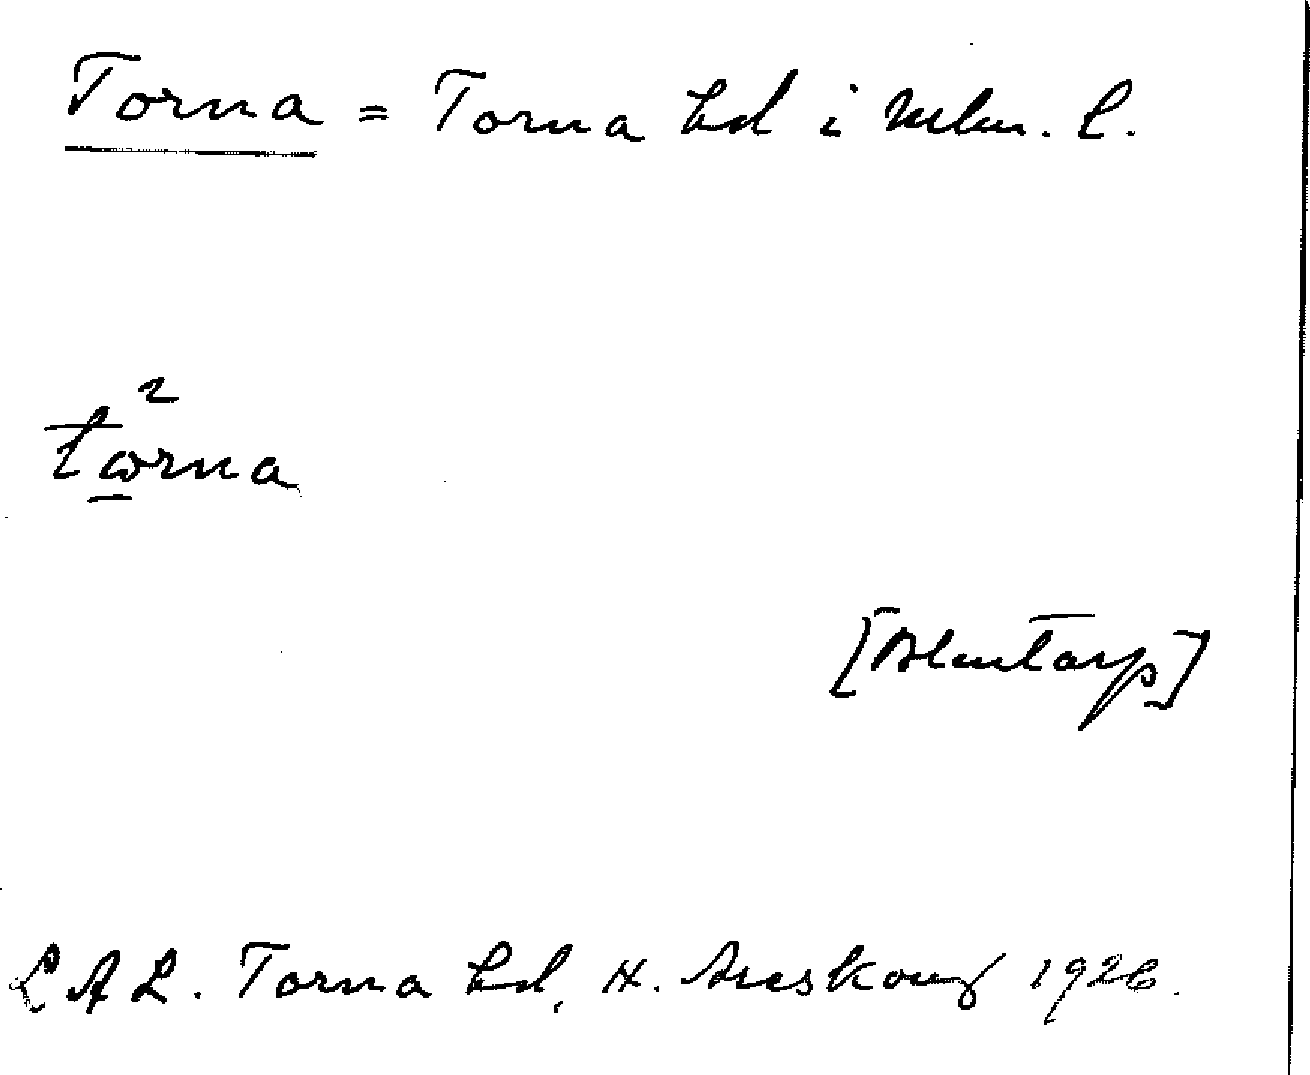 Torna = Torna hd i Mlm. l.
tωrna
[Blentarp]
L A L. Torna hd, H. Areskoug 1926.